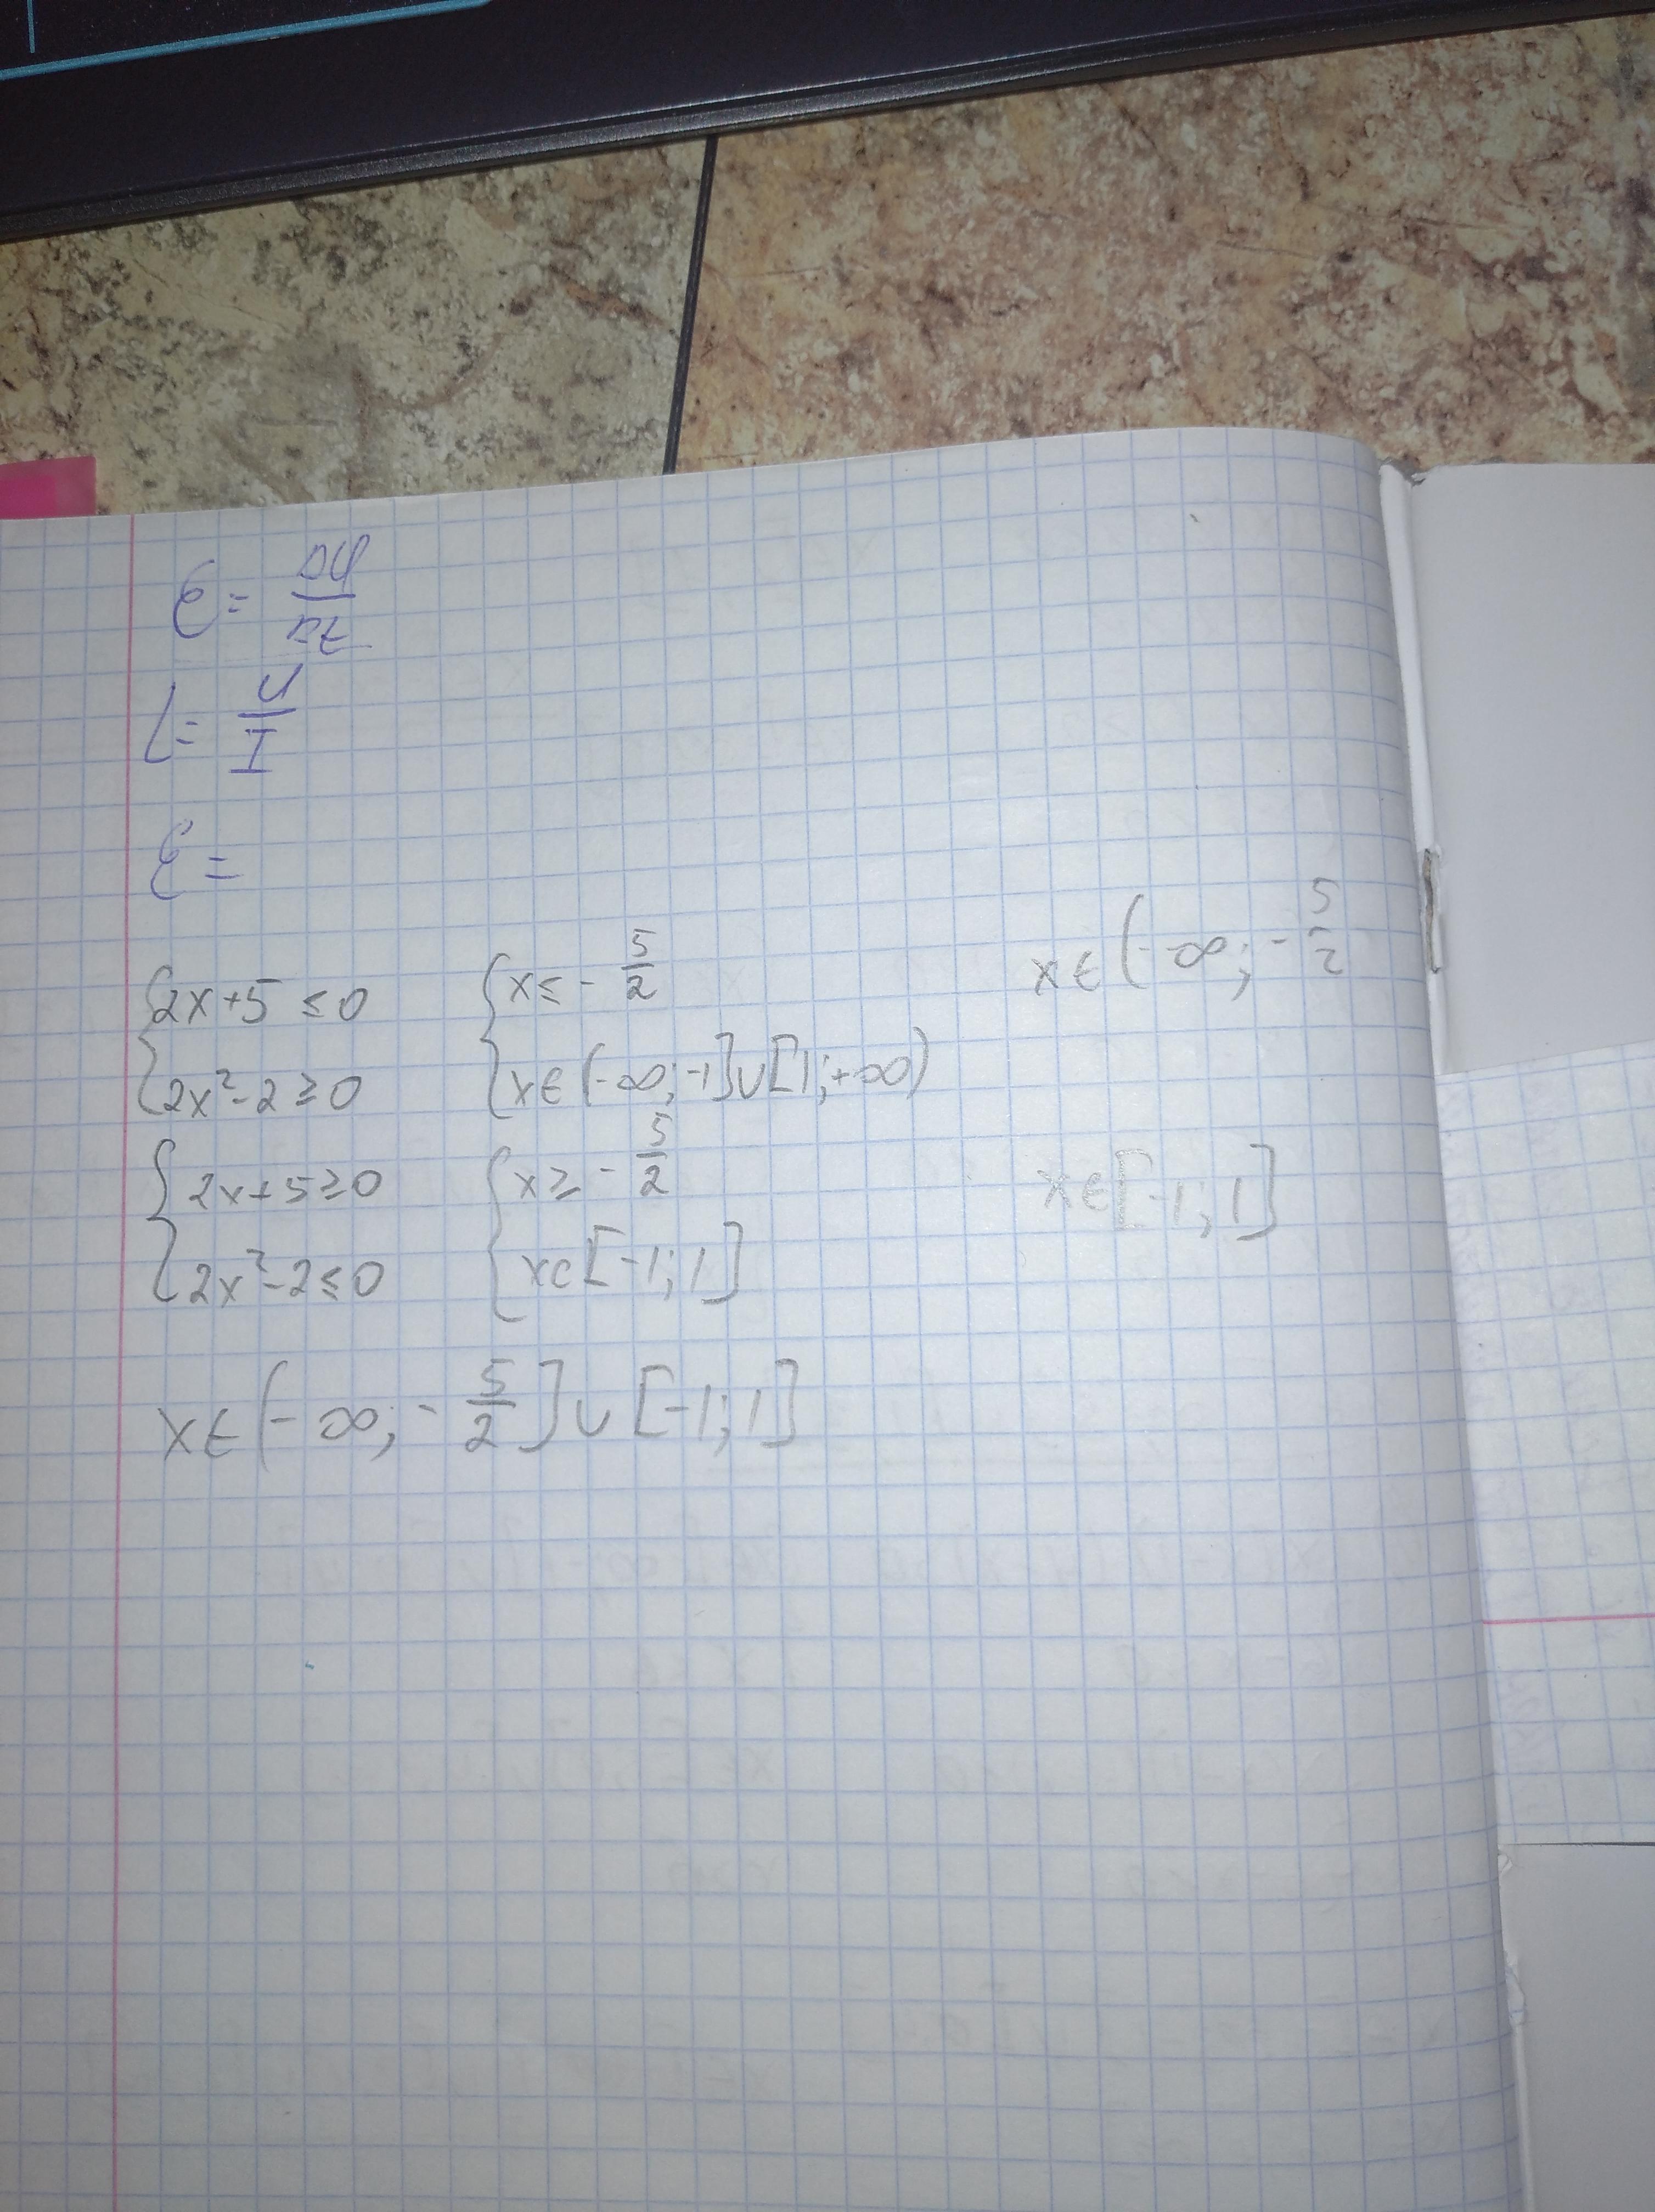 2x+5 ≤ 0
2x²-2 ≥ 0
x ≤ - 5/2
x∈(-∞;-1]∪[1;+∞)
x∈(-∞;- 5/2
2x+5 ≥ 0
2x²-2 ≤ 0
x ≥ - 5/2
x∈[-1;1]
x∈[-1;1]
x∈(-∞;- 5/2]∪[-1;1]